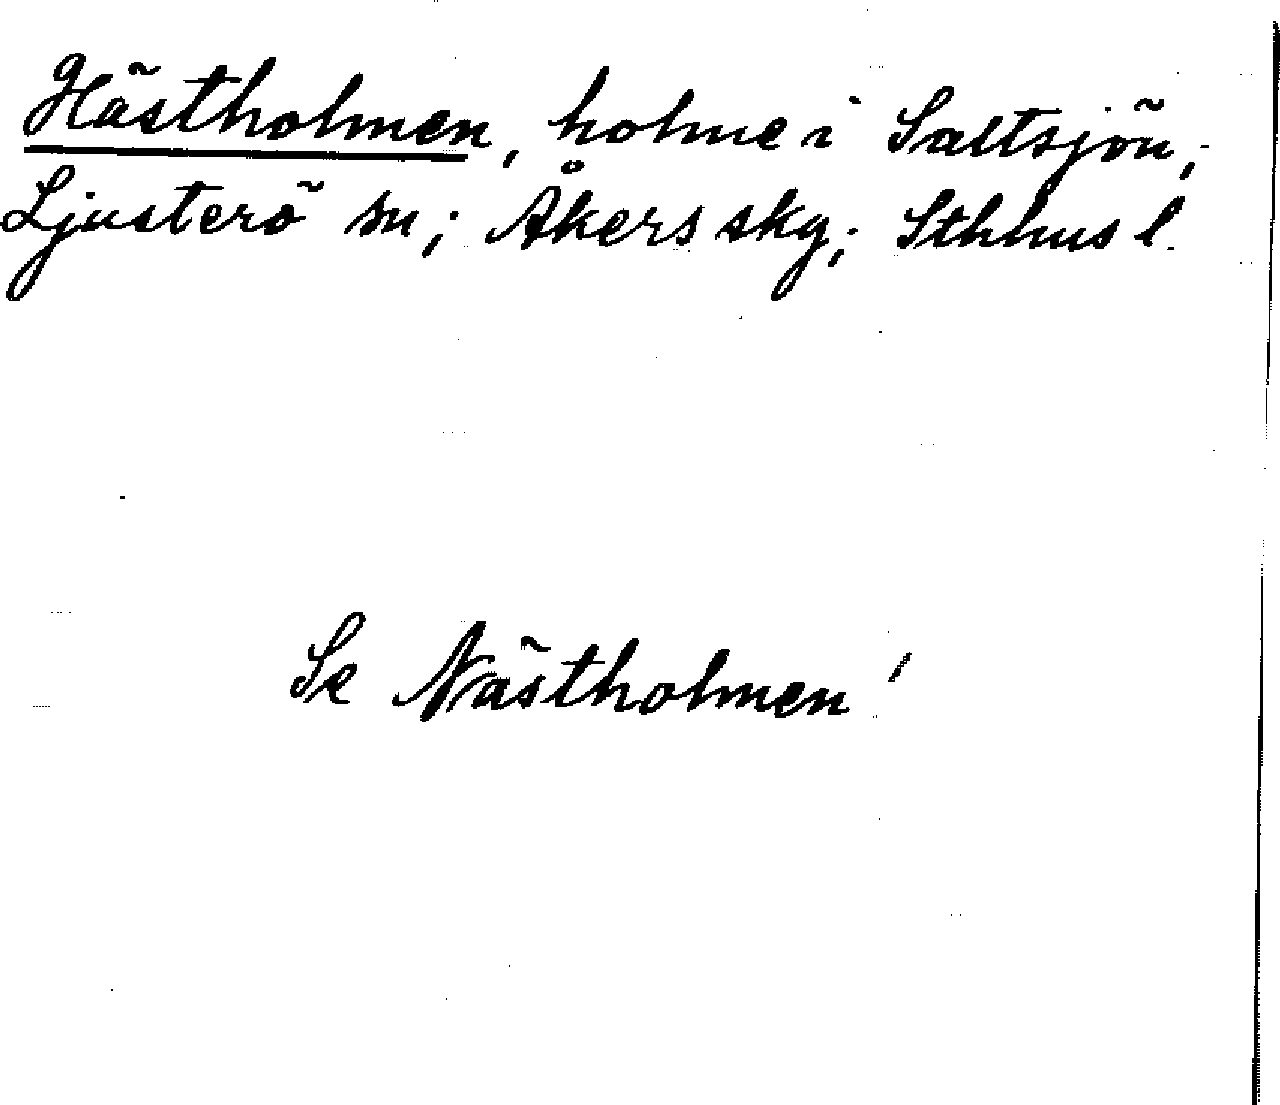 Hästholmen, holme i Saltsjön;
Ljusterö sn; Åkers skg; Sthlms l.
Se Nästholmen!